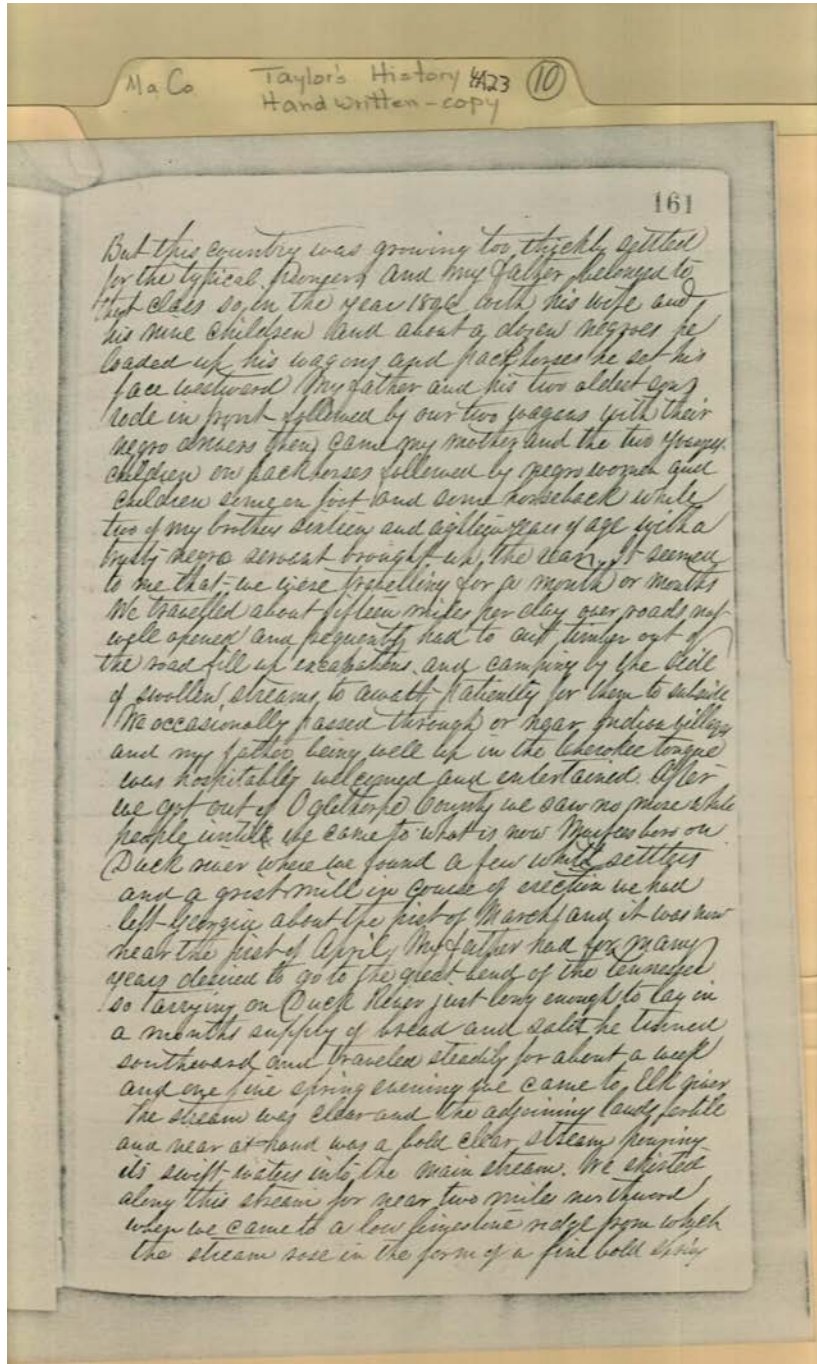 Ma Co Taylor's History 4A23 10
Hand written - copy
161
But this country was growing too thickly settled
for the typical Pioneer and my father belonged to
that class so, in the year 1806 with his wife and
his nine children and about a dozen negroes he
loaded up his wagons and packhorses he set his
face westward My father and his two oldest sons
rode in front followed by our two wagons with their
negro drivers then came my mother and the two younger
children on packhorses followed by negro women and
children some on foot and some horseback while
two of my brothers sixteen and eighteen years of age with a
trusty negro servant brought up the rear. It seemed
to me that we were travelling for a month or months
We travelled about fifteen miles per day over roads not
well opened and frequently had to cut timber out of
the road fill up excavations and camping by the side
of swollen streams to await patiently for them to subside
We occasionally passed through or near Indian villages
and my father being well up in the Cherokee tongue
was hospitably welcomed and entertained. After
we got out of Oglethorpe County we saw no more white
people untill we came to what is now Murfeesboro on
Duck river where we found a few white settlers
and a grist mill in course of erection we had
left Georgia about the first of March and it was now
near the first of April, My father had for many
years desired to go to the great bend of the Tennessee
so tarrying on Duck River just long enough to lay in
a months supply of bread and salt he turned
southward and traveled steadily for about a week
and one fine spring evening we came to Elk river
The stream was clear and the adjoining lands fertile
and near at hand was a bold clear stream pouring
its swift waters into the main stream. We skirted
along this stream for near two miles northward
when we came to a low limestone ridge from which
the stream rose in the form of a fine bold Spring